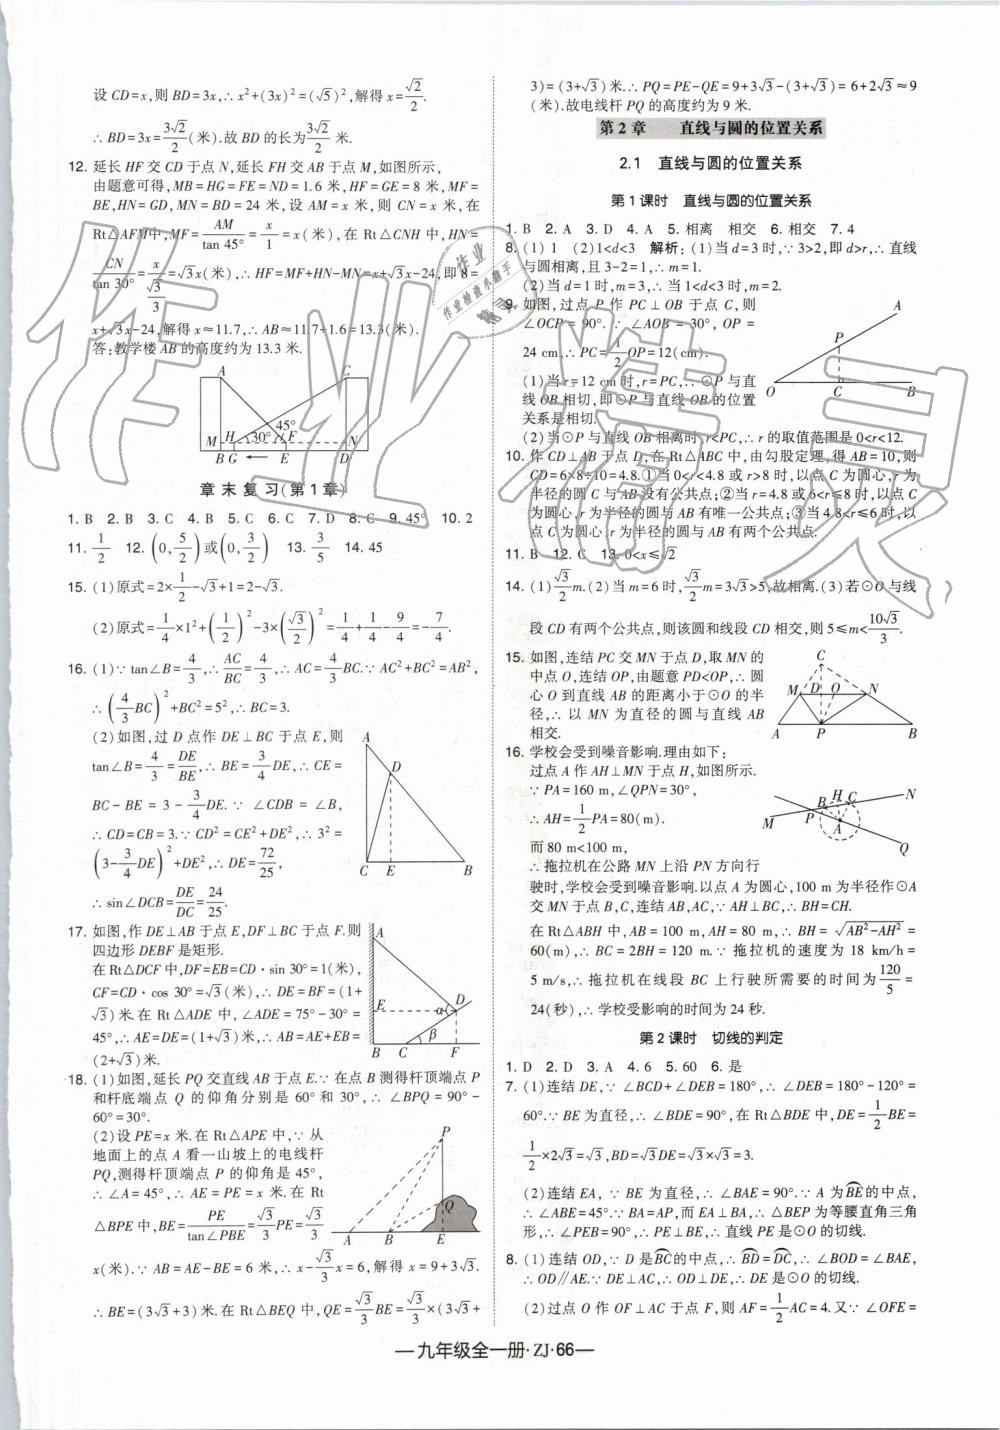 设 CD=x,则 BD=3x,∴x²+(3x)²=(√5)²,解得 x=√2/2.
∴BD=3x=3√2/2(米).故 BD 的长为3√2/2米.
12. 延长 HF 交 CD 于点 N,延长 FH 交 AB 于点 M,如图所示,
由题意可得,MB=HG=FE=ND=1.6 米,HF=GE=8 米,MF=
BE,HN=GD,MN=BD=24 米,设 AM=x 米,则 CN=x 米,在
Rt△AFM中,MF=AM/tan 45°=x/1=x,在 Rt△CNH 中,HN=
CN/tan 30°=x/(√3/3)=√3x(米),∴HF=MF+HN-MN=x+√3x-24,即 8=
x+√3x-24,解得 x≈11.7,∴AB≈11.7+1.6=13.3(米).
答:教学楼 AB 的高度约为 13.3 米.
A C
45°
M H 30° F N
B G E D
章末复习(第1章)
1. B 2. B 3. C 4. B 5. C 6. C 7. D 8. C 9. 45° 10. 2
11. 1/2 12. (0,5/2)或(0,3/2) 13. 3/5 14. 45
15. (1)原式=2×1/2-√3+1=2-√3.
(2)原式=1/4×1²+(1/2)²-3×(√3/2)²=1/4+1/4-9/4=-7/4.
16. (1)∵tan∠B=4/3,∴AC/BC=4/3,∴AC=4/3BC.∵AC²+BC²=AB²,
∴(4/3BC)²+BC²=5²,∴BC=3.
(2)如图,过 D 点作 DE⊥BC 于点 E,则
tan∠B=4/3=DE/BE,∴BE=3/4DE,∴CE=
BC-BE=3-3/4DE.∵∠CDB=∠B,
∴CD=CB=3.∵CD²=CE²+DE²,∴3²=
(3-3/4DE)²+DE²,∴DE=72/25,
∴sin∠DCB=DE/DC=24/25.
A
D
C E B
17. 如图,作 DE⊥AB 于点 E,DF⊥BC 于点 F.则
四边形 DEBF 是矩形.
在 Rt△DCF 中,DF=EB=CD·sin 30°=1(米),
CF=CD·cos 30°=√3(米),∴DE=BF=(1+
√3)米.在 Rt△ADE 中,∠ADE=75°-30°=
45°,∴AE=DE=(1+√3)米,∴AB=AE+EB=
(2+√3)米.
A
E α D
β
B C F
18. (1)如图,延长 PQ 交直线 AB 于点 E.∵在点 B 测得杆顶端点 P
和杆底端点 Q 的仰角分别是 60°和 30°,∴∠BPQ=90°-
60°=30°.
(2)设 PE=x 米.在 Rt△APE 中,∵从
地面上的点 A 看一山坡上的电线杆
PQ,测得杆顶端点 P 的仰角是 45°,
∴∠A=45°,∴AE=PE=x 米.在 Rt
△BPE 中,BE=PE/tan∠PBE=√3/3PE=√3/3
x(米).∵AB=AE-BE=6 米,∴x-√3/3x=6,解得 x=9+3√3.
∴BE=(3√3+3)米.在 Rt△BEQ 中,QE=√3/3BE=√3/3×(3√3+
P
Q
A B E
3)=(3+√3)米.∴PQ=PE-QE=9+3√3-(3+√3)=6+2√3≈9
(米).故电线杆 PQ 的高度约为 9 米.
第 2 章 直线与圆的位置关系
2.1 直线与圆的位置关系
第 1 课时 直线与圆的位置关系
1. B 2. A 3. D 4. A 5. 相离 相交 6. 相交 7. 4
8. (1)1 (2)1<d<3 解析:(1)当 d=3 时,∵3>2,即 d>r,∴直线
与圆相离,且 3-2=1,∴m=1.
(2)当 d=1 时,m=3,∴当 1<d<3 时,m=2.
9. 如图,过点 P 作 PC⊥OB 于点 C,则
∠OCP=90°.∵∠AOB=30°,OP=
24 cm,∴PC=1/2OP=12(cm).
(1)当 r=12 cm 时,r=PC,∴⊙P 与直
线 OB 相切,即⊙P 与直线 OB 的位置
关系是相切.
(2)当⊙P 与直线 OB 相离时,r<PC,∴r 的取值范围是 0<r<12.
A
P
O C B
10. 作 CD⊥AB 于点 D,在 Rt△ABC 中,由勾股定理,得 AB=10,则
CD=6×8÷10=4.8.①当 0<r<4.8 或 r>8 时,以点 C 为圆心,r 为
半径的圆 C 与 AB 没有公共点;②当 r=4.8 或 6<r≤8 时,以点 C
为圆心,r 为半径的圆与 AB 有唯一公共点;③当 4.8<r≤6 时,以
点 C 为圆心,r 为半径的圆与 AB 有两个公共点.
11. B 12. C 13. 0<x≤√2
14. (1)√3/2m.(2)当 m=6 时,√3/2m=3√3>5,故相离.(3)若⊙O 与线
段 CD 有两个公共点,则该圆和线段 CD 相交,则 5≤m<10√3/3.
15. 如图,连结 PC 交 MN 于点 D,取 MN 的
中点 O,连结 OP,由题意 PD<OP,∴圆
心 O 到直线 AB 的距离小于⊙O 的半
径,∴以 MN 为直径的圆与直线 AB
相交.
C
M D O N
A P B
16. 学校会受到噪音影响.理由如下:
过点 A 作 AH⊥MN 于点 H,如图所示.
∵PA=160 m,∠QPN=30°,
∴AH=1/2PA=80(m).
而 80 m<100 m,
∴拖拉机在公路 MN 上沿 PN 方向行
驶时,学校会受到噪音影响.以点 A 为圆心,100 m 为半径作⊙A
交 MN 于点 B,C,连结 AB,AC,∵AH⊥BC,∴BH=CH.
在 Rt△ABH 中,AB=100 m,AH=80 m,∴BH=√(AB²-AH²)=
60(m),∴BC=2BH=120 m.∵拖拉机的速度为 18 km/h=
5 m/s,∴拖拉机在线段 BC 上行驶所需要的时间为120/5=
24(秒),∴学校受影响的时间为 24 秒.
B H C N
M P A
Q
第 2 课时 切线的判定
1. D 2. D 3. A 4. 6 5. 60 6. 是
7. (1)连结 DE,∵∠BCD+∠DEB=180°,∴∠DEB=180°-120°=
60°.∵BE 为直径,∴∠BDE=90°,在 Rt△BDE 中,DE=1/2BE=
1/2×2√3=√3,BD=√3DE=√3×√3=3.
(2)连结 EA,∵BE 为直径,∴∠BAE=90°.∵A 为BE的中点,
∴∠ABE=45°.∵BA=AP,而 EA⊥BA,∴△BEP 为等腰直角三角
形,∴∠PEB=90°,∴PE⊥BE,∴直线 PE 是⊙O 的切线.
8. (1)连结 OD,∵D 是BC的中点,∴BD=DC,∴∠BOD=∠BAE,
∴OD∥AE.∵DE⊥AC,∴OD⊥DE,∴DE 是⊙O 的切线.
(2)过点 O 作 OF⊥AC 于点 F,则 AF=1/2AC=4.又∵∠OFE=
—九年级全一册·ZJ·66—
作业精灵
作业
作业检查小助手
精灵